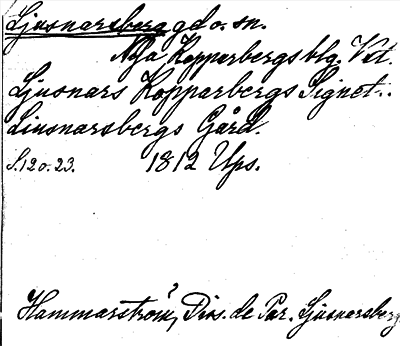 Ljusnarsberg gd o. sn.
Nya Kopparbergs blg. Vstl.
Ljusnars Kopparbergs Signet..
Liusnarsbergs Gård.
S. 12 o. 23. 1812 Ups.
Hammarström?, Diss. de Par. Ljusnarsberg